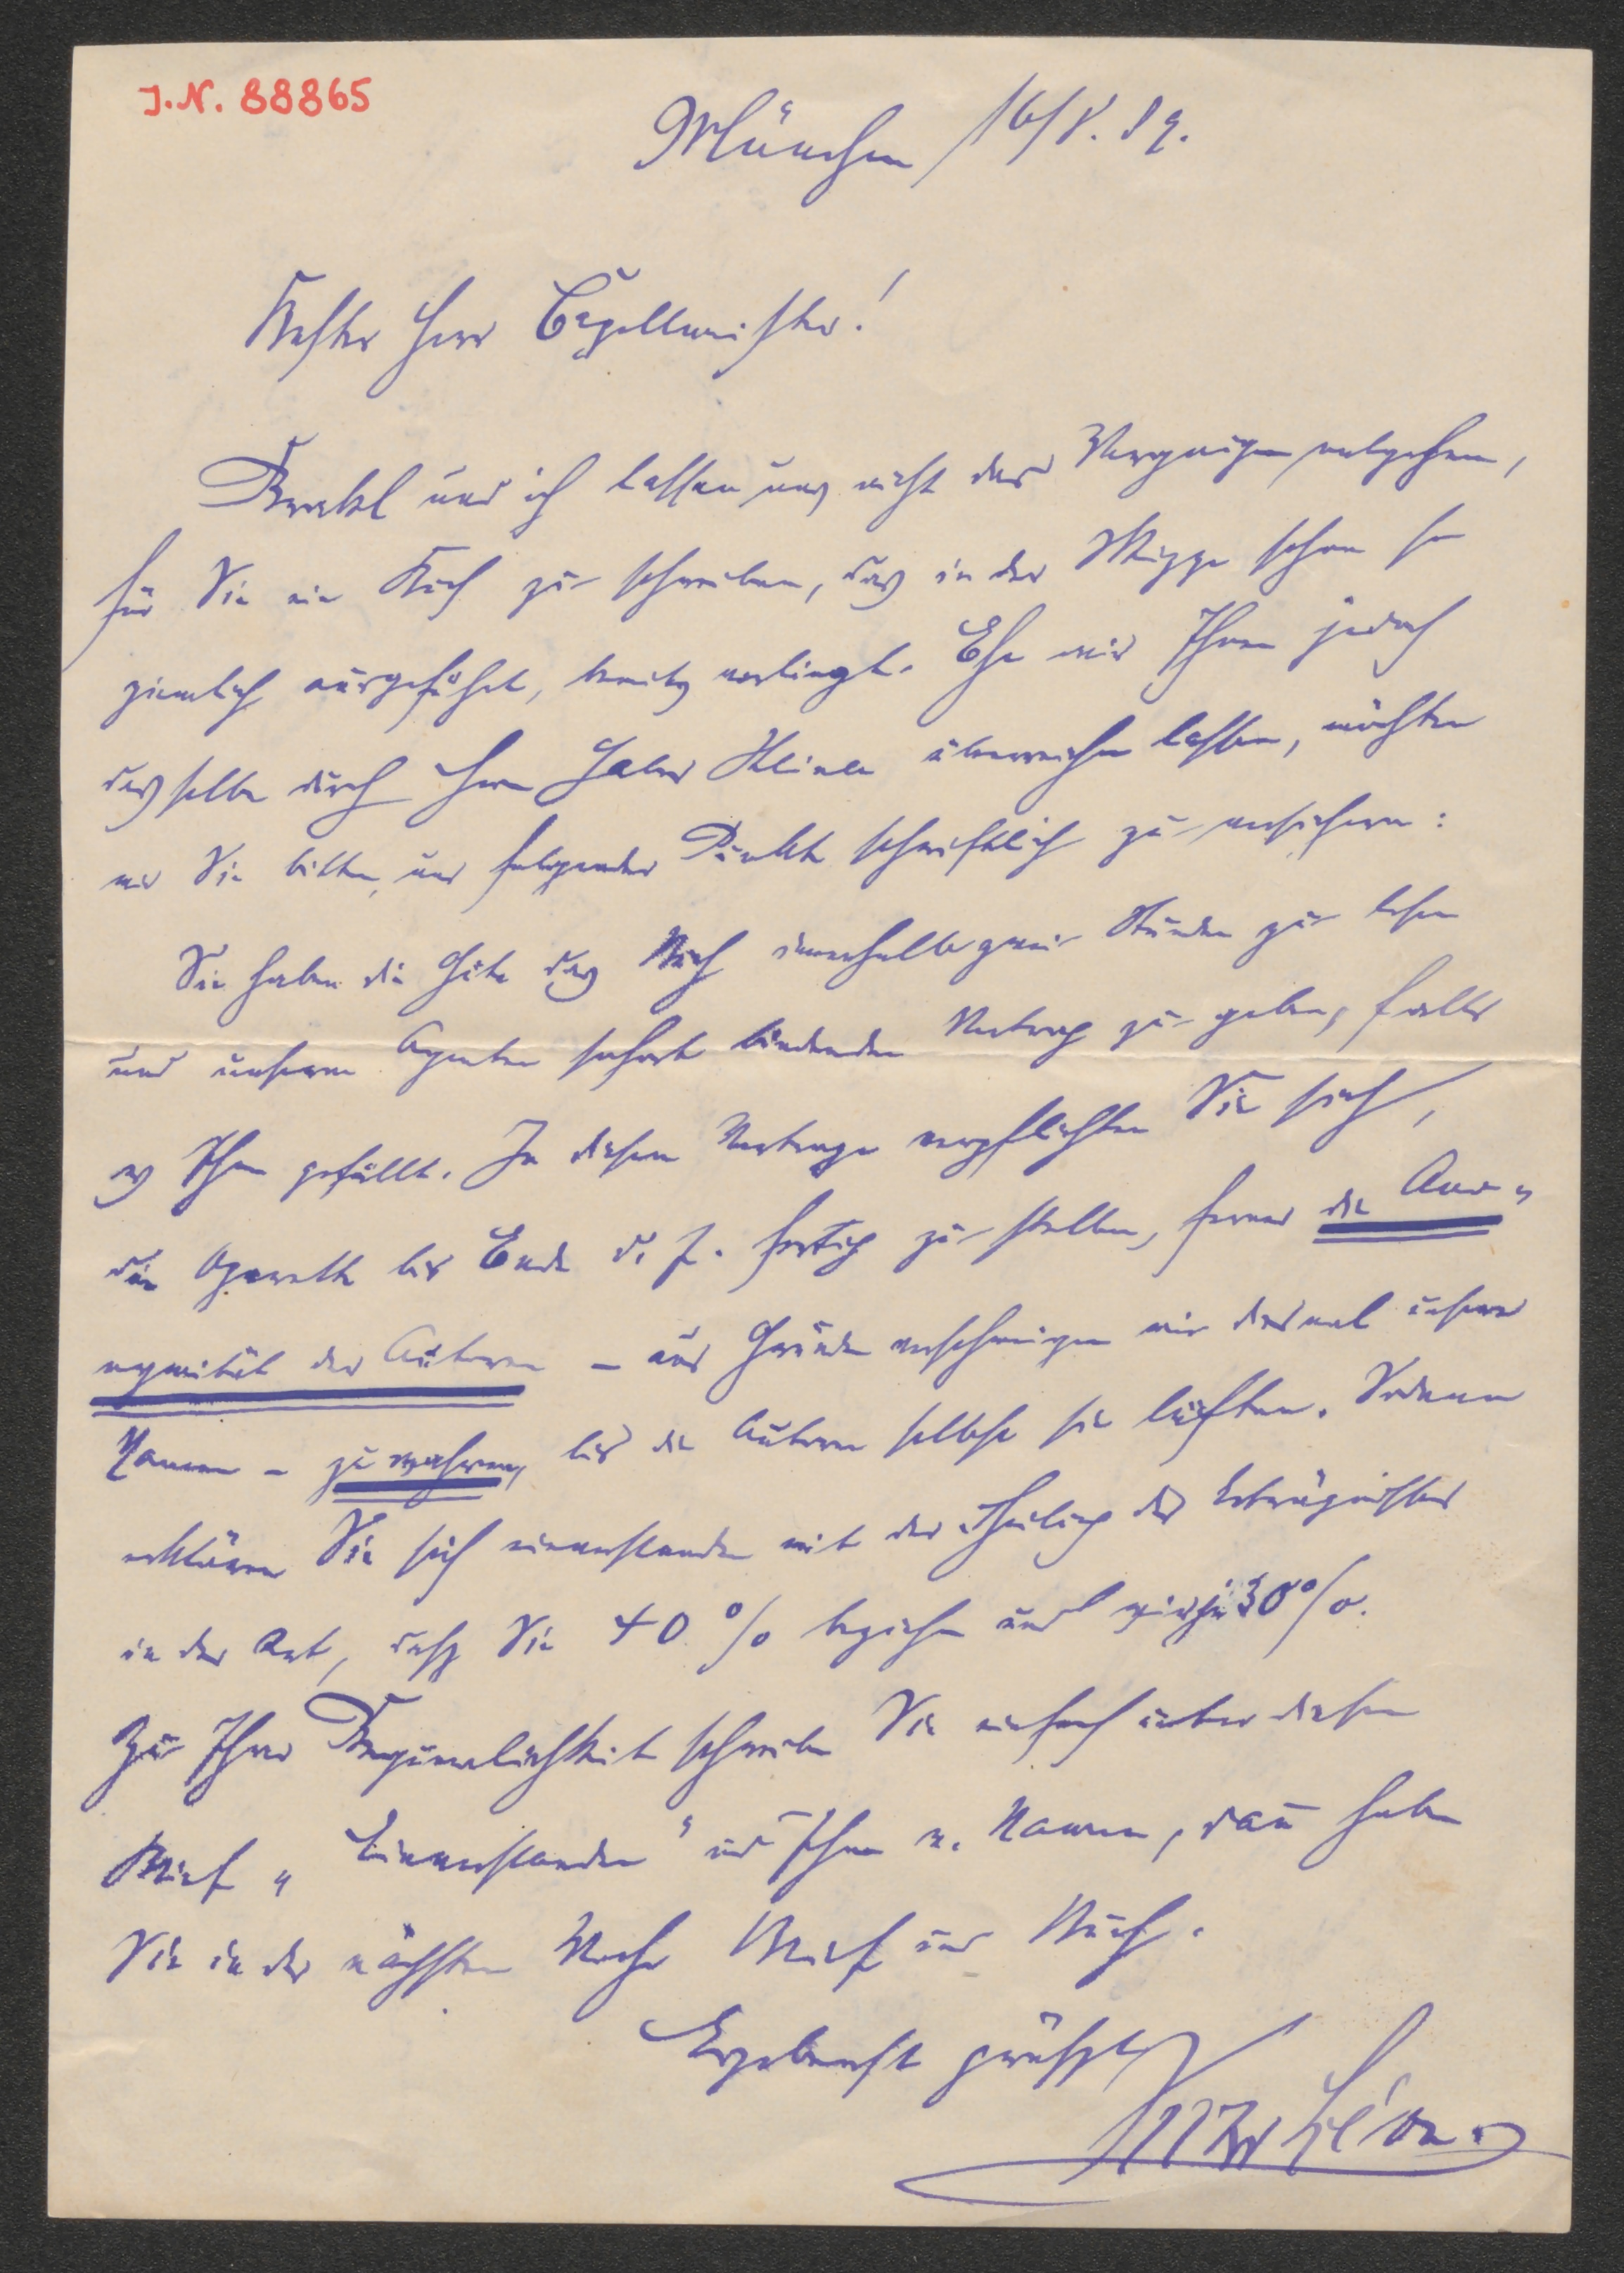 J.N. 88865
München 16/8. 89.
Bester Herr Capellmeister!
Brakl und ich lassen uns nicht das Vergnügen entgehen,
für Sie ein Buch zu schreiben, das in der Skizze schon so
ziemlich ausgeführt, bereits vorliegt. Ehe wir Ihnen jedoch
dasselbe durch Herrn überreichen lassen, möchten
wir Sie bitten, uns folgende Punkte schriftlich zu versichern:
Sie haben die Güte das Buch innerhalb zwei Stunden zu lesen
und unserm Agenten sofort bindenden Vertrag zu geben, falls
es Ihnen gefällt. In diesem Vertrage verpflichten Sie sich,
die Operette bis Ende d. J. fertig zu stellen, ferner die Ano-
nymität der Autoren – aus Gründen verschweigen wir diesmal unsere
Namen – zu wahren, bis die Autoren selbst sie lüften. Sodann
erklären Sie sich einverstanden mit der Theilung des Erträgnisses
in der Art, dass Sie 40 % beziehen und wir je 30%.
Zu Ihrer Bequemlichkeit schreiben Sie einfach unter diesen
Brief „Einverstanden" und Ihren w. Namen, dann haben
Sie in der nächsten Woche Brief und Buch.
Ergebenst grüßt